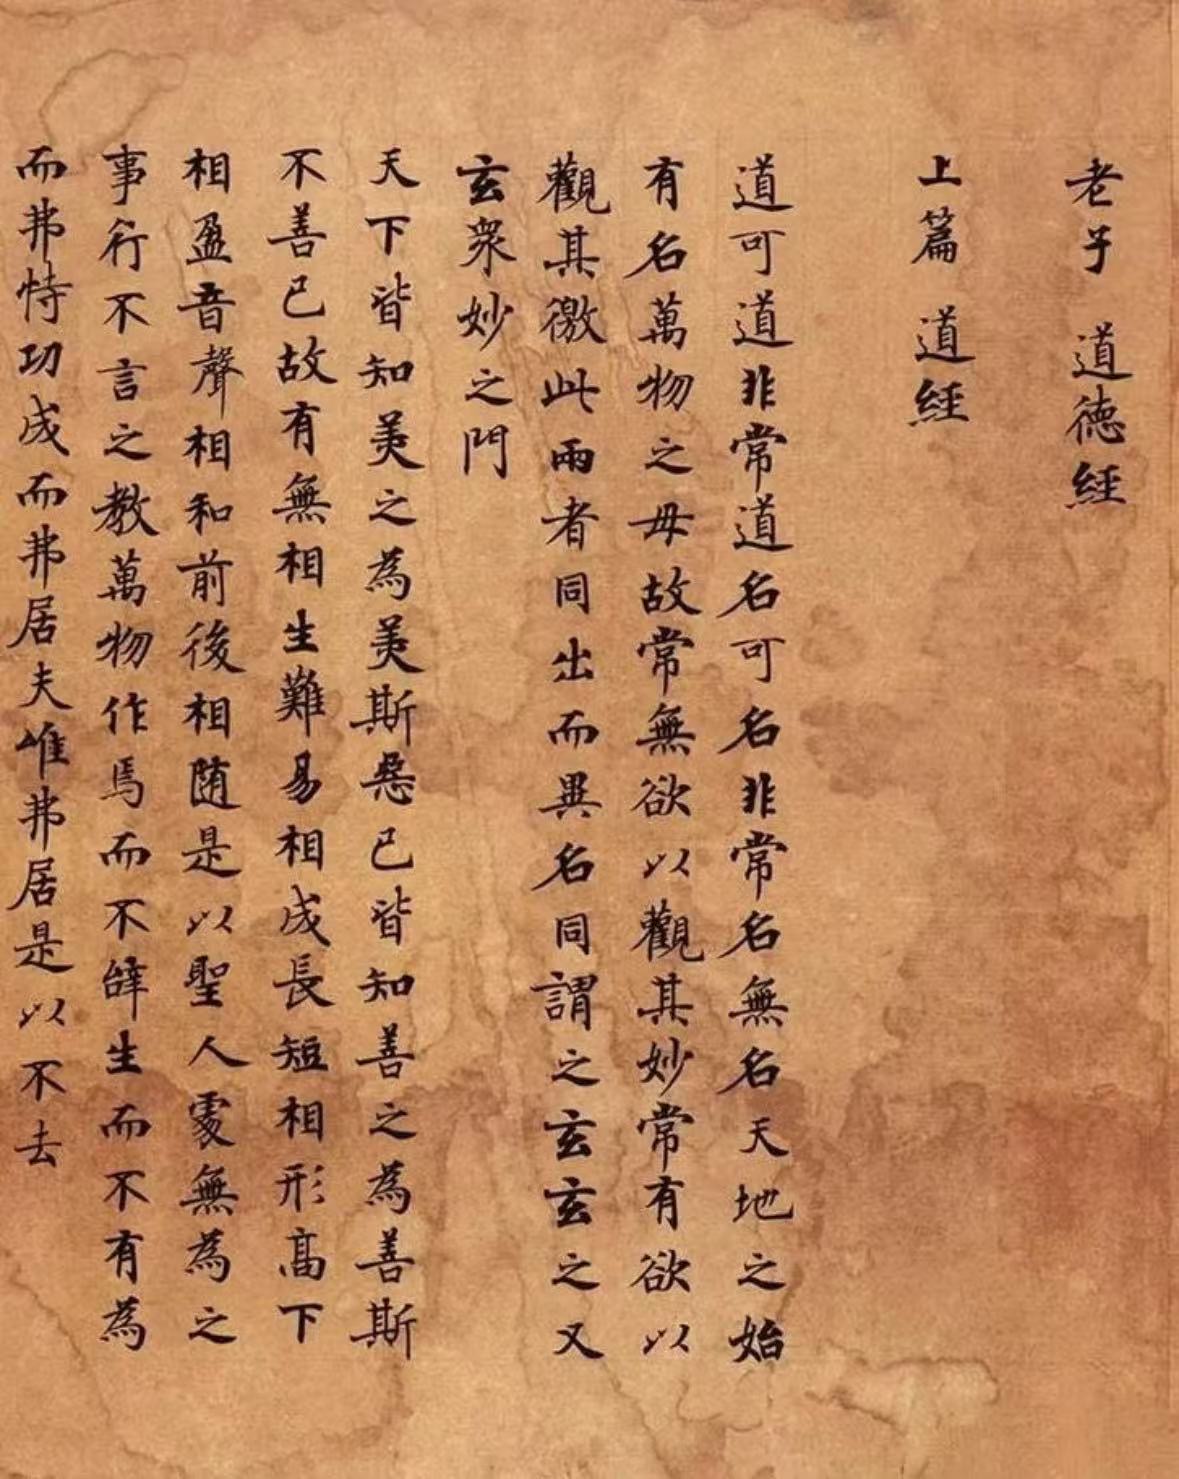 老子 道德經
上篇 道經
道可道非常道名可名非常名無名天地之始
有名萬物之母故常無欲以觀其妙常有欲以
觀其徼此兩者同出而異名同謂之玄玄之又
玄衆妙之門
天下皆知美之為美斯惡已皆知善之為善斯
不善已故有無相生難易相成長短相形高下
相盈音聲相和前後相随是以聖人處無為之
事行不言之教萬物作焉而不辭生而不有為
而弗恃功成而弗居夫唯弗居是以不去